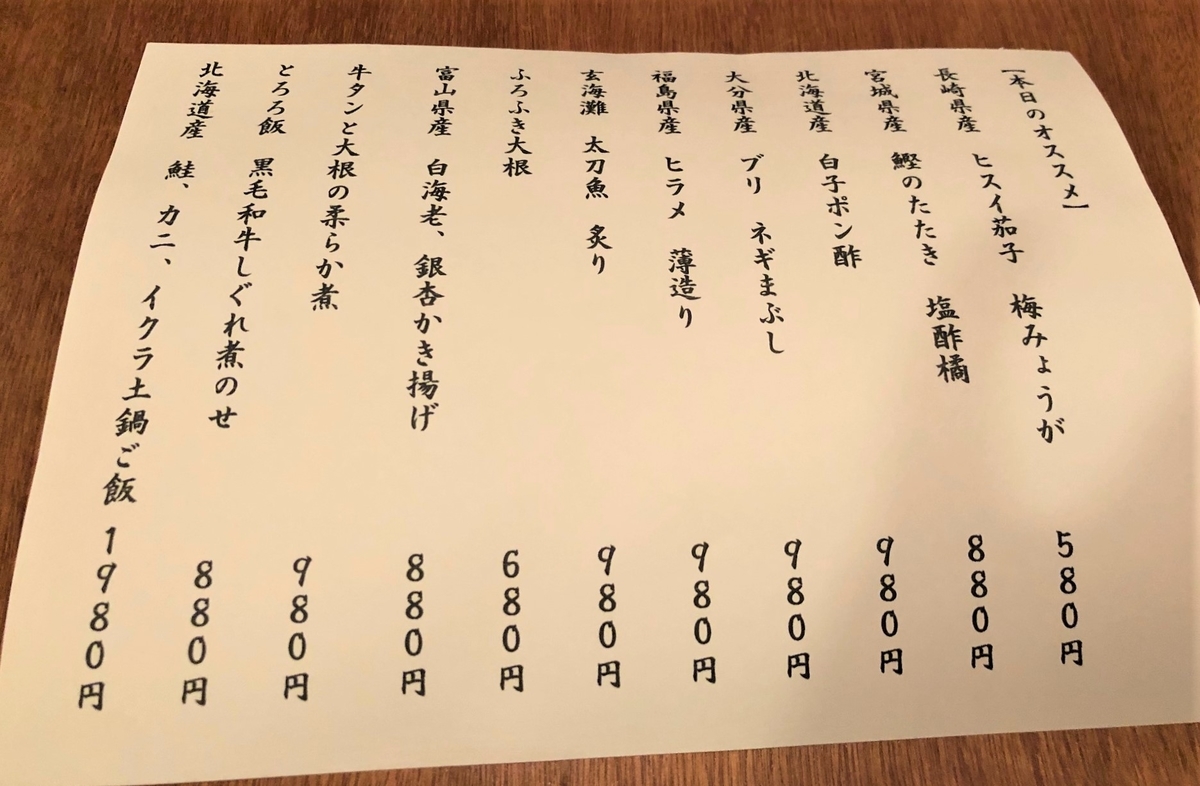 【本日のオススメ】
長崎県産 ヒスイ茄子 梅みょうが 580円
宮城県産 鰹のたたき 塩酢橘 880円
北海道産 白子ポン酢 980円
大分県産 ブリ ネギまぶし 980円
福島県産 ヒラメ 薄造り 980円
玄海灘 太刀魚 炙り 980円
ふろふき大根 680円
富山県産 白海老、銀杏かき揚げ 880円
牛タンと大根の柔らか煮 980円
とろろ飯 黒毛和牛しぐれ煮のせ 880円
北海道産 鮭、カニ、イクラ土鍋ご飯 1980円